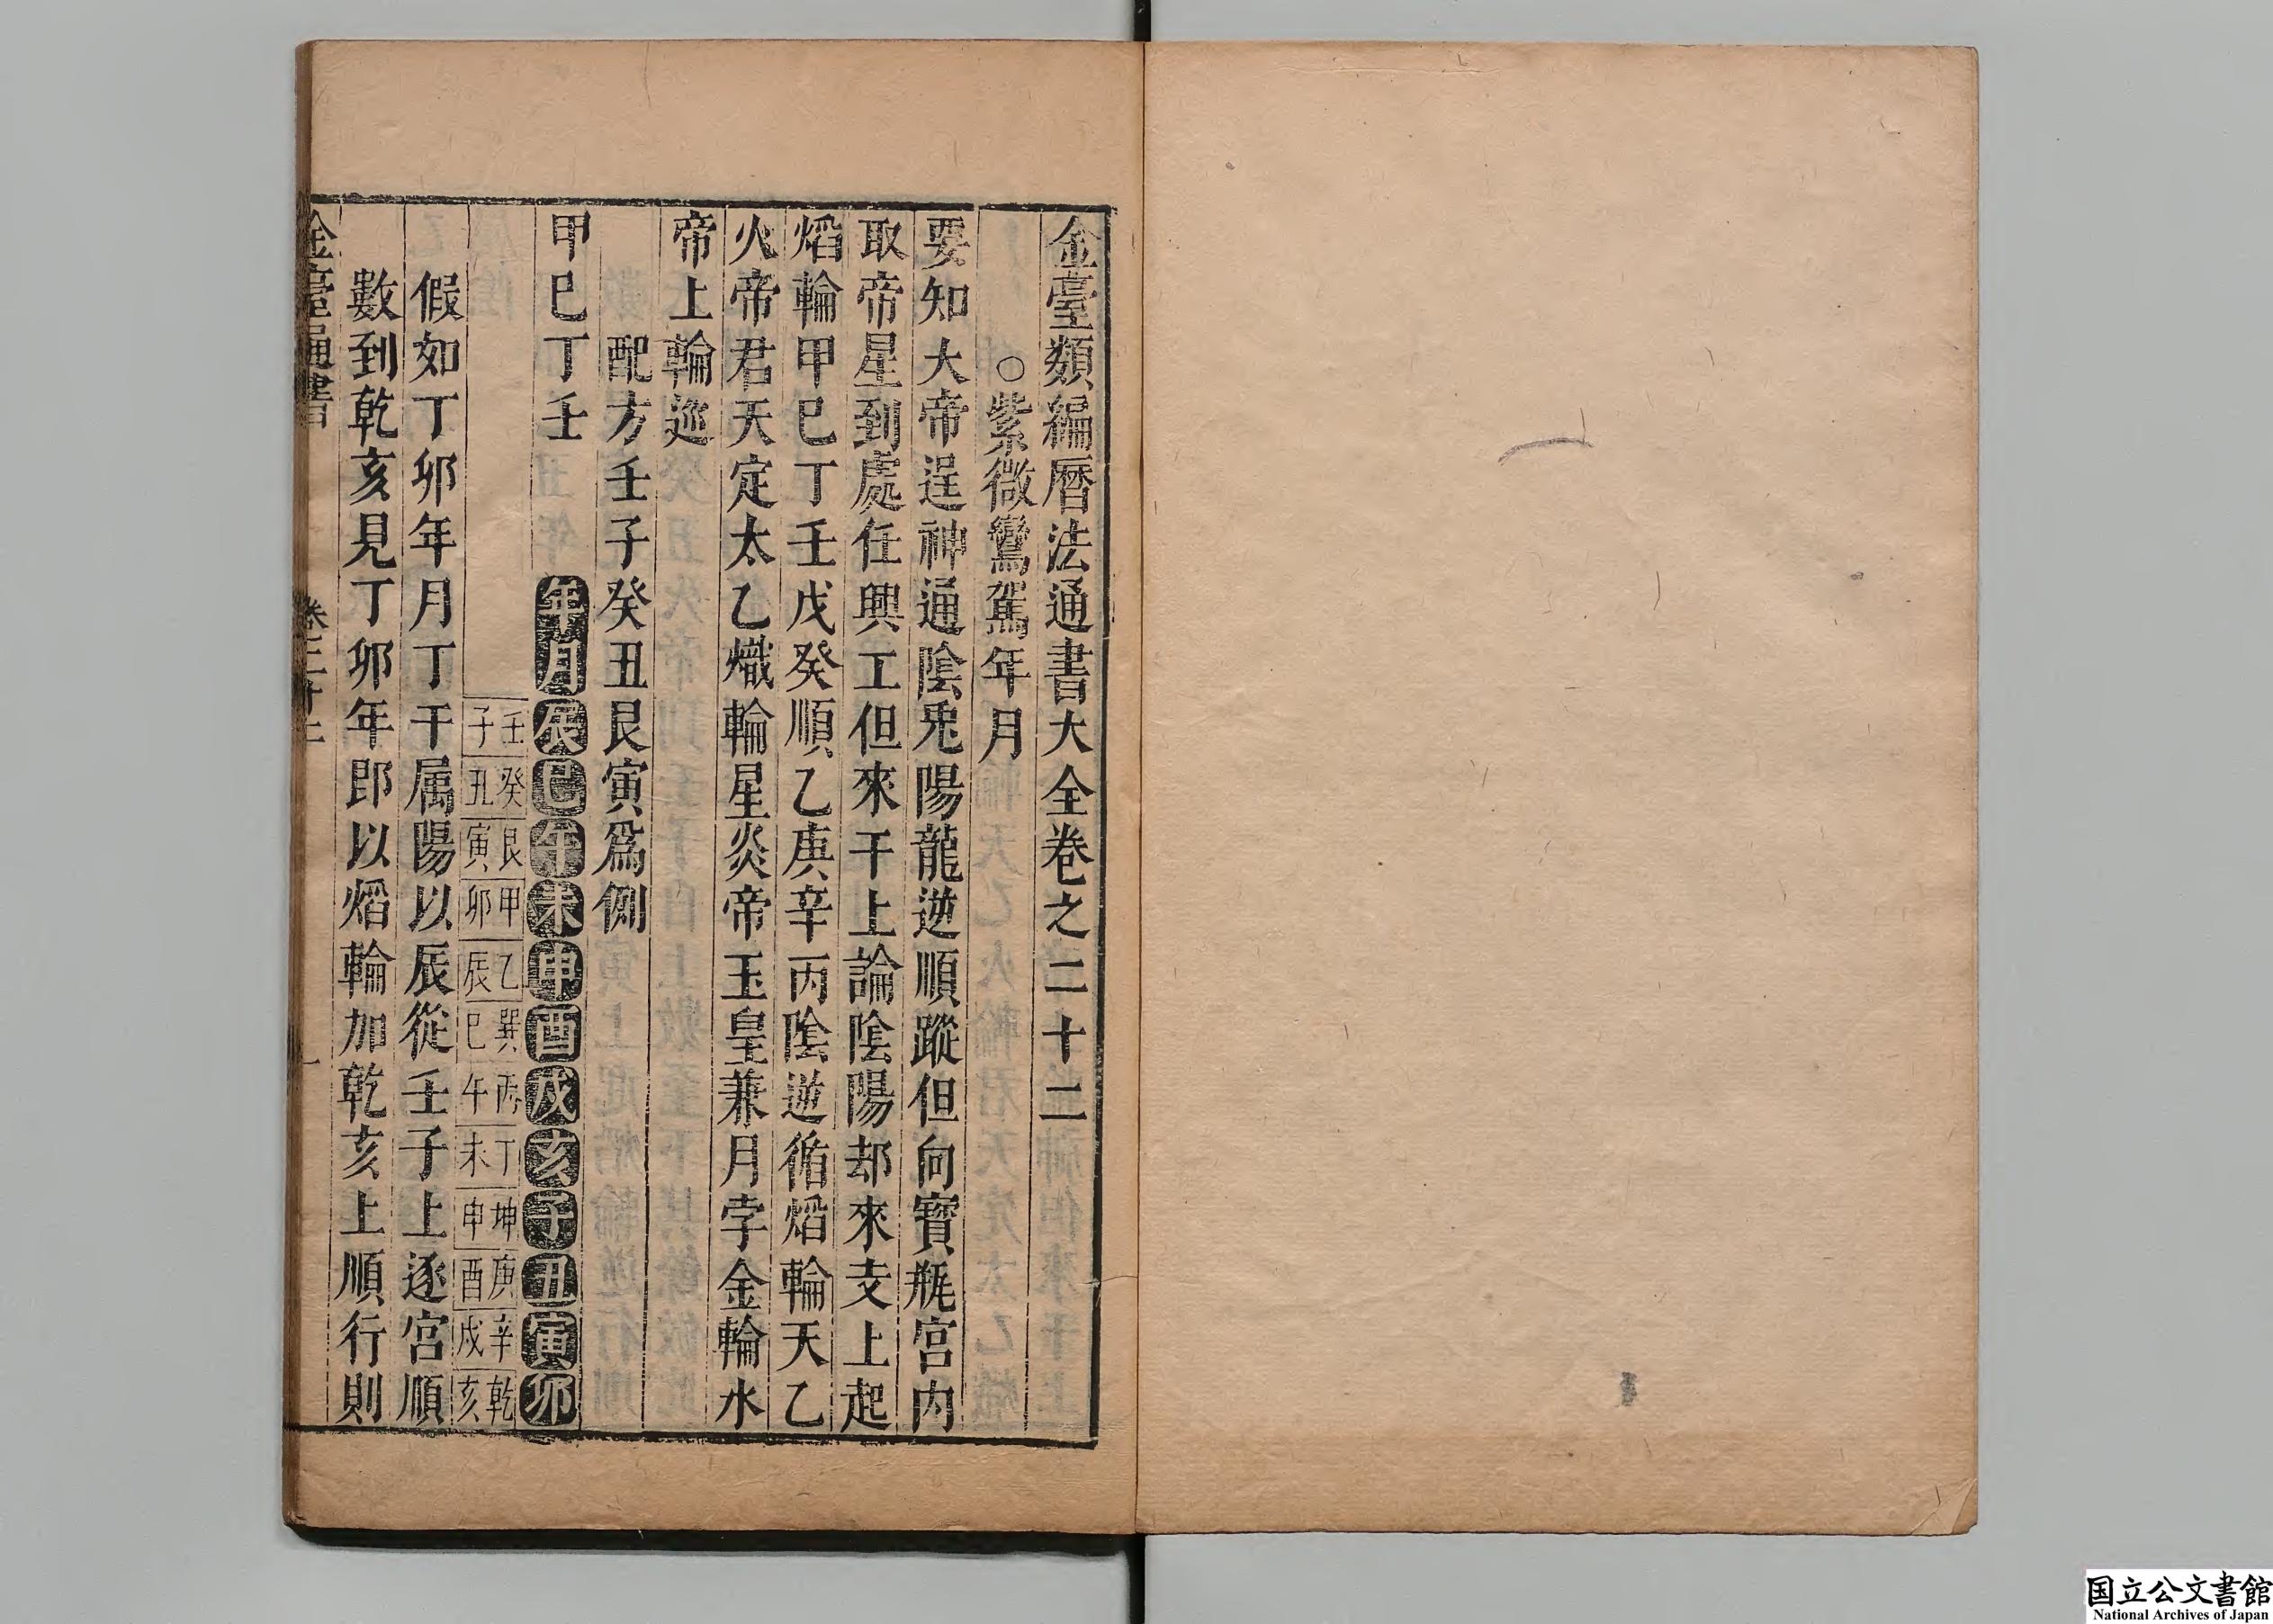 金臺類編曆法通書大全卷之二十二
○紫微鸞駕年月
要知大帝逞神通陰兎陽龍逆順蹤但向寶瓶宮内
取帝星到處任興工但來干上論陰陽却來支上起
熖輪甲巳丁壬戊癸順乙庚辛丙陰逆循熖輪天乙
火帝君天定太乙熾輪星炎帝玉皇兼月孛金輪水
帝上輪巡
配方壬子癸丑艮寅爲例
甲巳丁壬 年月辰巳午未申酉戌亥子丑寅卯
壬子 癸丑 艮寅 甲卯 乙辰 巽巳 丙午 丁未 坤申 庚酉 辛戌 乾亥
假如丁卯年月丁干属陽以辰從壬子上逐宮順
數到乾亥見丁卯年即以熖輪加乾亥上順行則
金臺通書 卷二十二 一
国立公文書館
National Archives of Japan